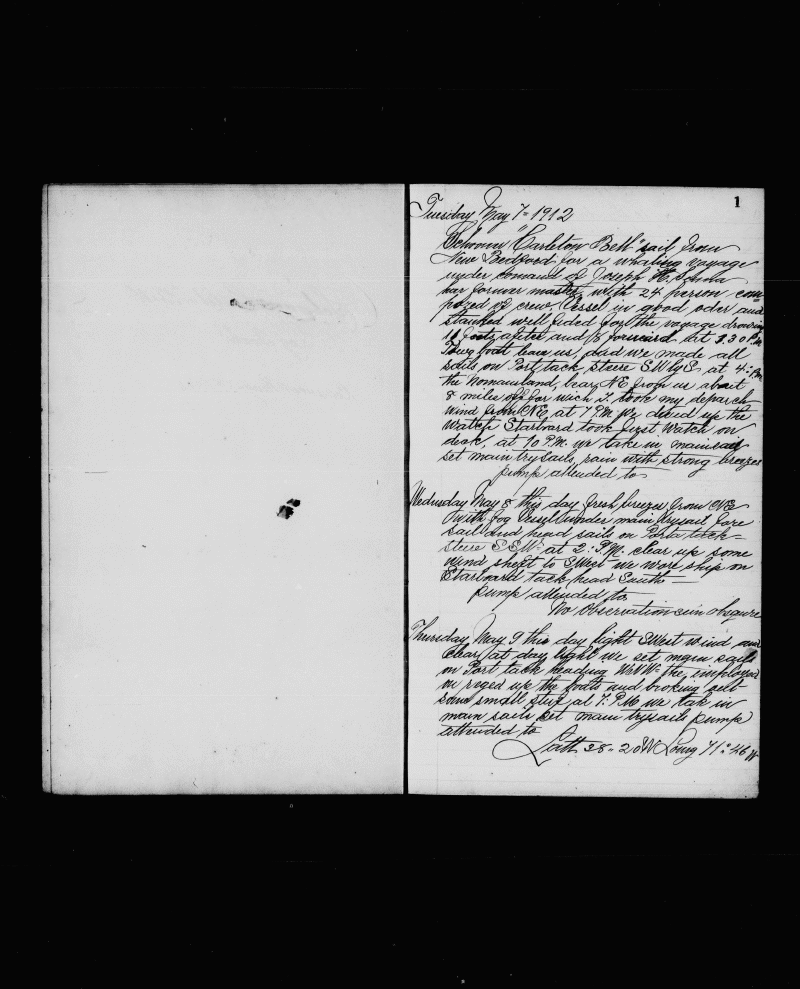 1
Tuesday May 7= 1912
Schooner "Carleton Bell" sail from
New Bedford for a whaling voyage
under comand of Joseph H. Senna
har former master, with 24 person com
pozed of crew. Vessel in good oder and
stanked well fided for the voyage drowing
11 foots after and 8 forward at 3.30 P.M.
Towg boat leave us, and we made all
sails on Port tack, steere SW by S- at 4= P.M
the Nomansland, bear NE from us about
8 miles off for wich I. took my deparch
wind from NE at 7 P.M. we divid up the
watch Starboard took first watch on
deak, at 10 P.M. we take in mainsail
set main trysails, rain with strong breezes
pump attended to
Wednusday May 8 this day fresh breezes from NE
with fog Vessel under main trysail fore
sail and head sails on Porta tack=
steere SSW. at 2= P.M. clear up some
wind sheft to SWest we wore ship on
Starboard tack head South
pump attended to
No Observation sun obsqure
Thursday May 9 this day light SWest wind and
Clear, at day light we set main sails
on Port tack heading WNW. the, employed
on riged up the boats and broking out
some small stuf at 7= P.M. we tak in
main sails set main trysails pump
attended to
Latt 38= 20 N Long 71= 46 W